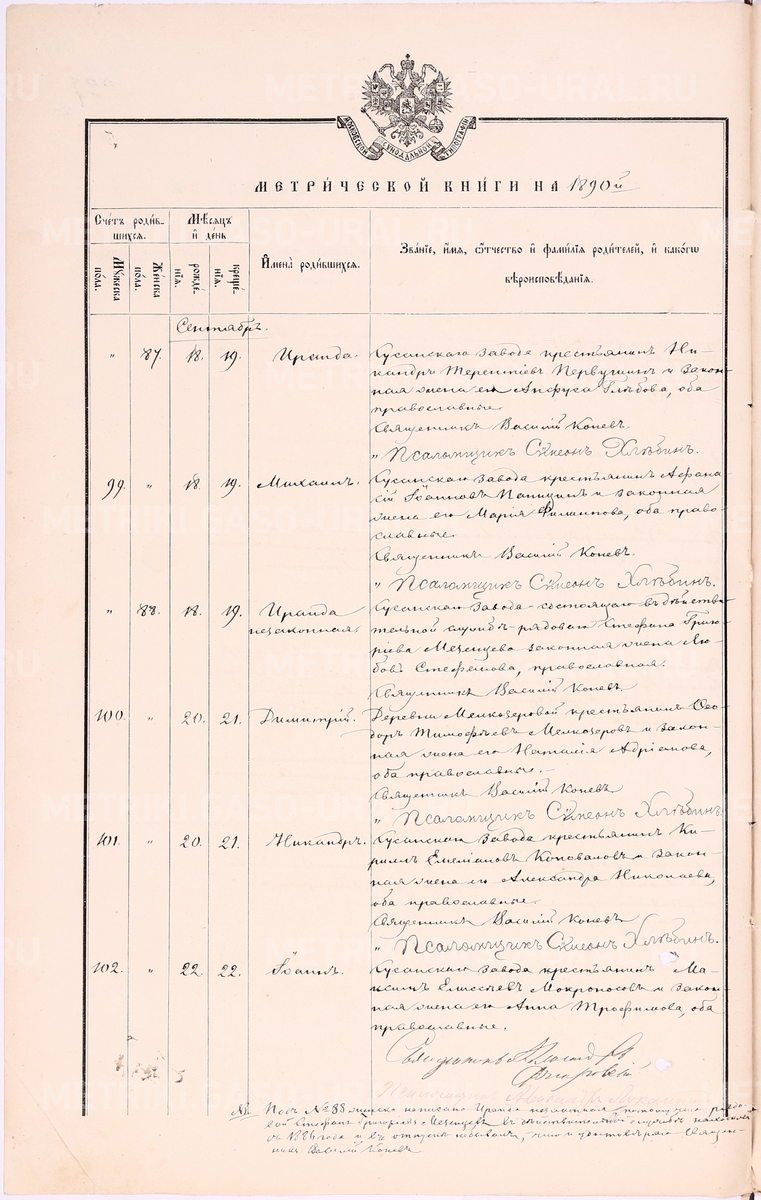 МОСКОВСКОЙ СУНОДАЛЬНОЙ ТИПОГРАФІИ
МЕТРИ́ЧЕСКОЙ КНИ́ГИ НА 1890й
Сче́тъ роди́в- Мѣ́сяцъ
шихся. и де́нь
Му́жеска по́ла. Же́нска по́ла. рожде́нїѧ. креще́нїѧ. И҆мена̀ роди́вшихся. Зва́нїе, и҆́мя, ѻ҆́тчество и҆ фами́лїя роди́телей, и҆ како́гѡ
вѣроисповѣ́данїѧ.
Сентябрь.
„ 87. 18. 19. Ираида. Кусинскаго завода крестьянинъ Ни-
кандръ Терентіевъ Первушинъ и закон-
ная жена его Анфуса Глѣбова, оба
православные
Священникъ Василій Коневъ.
„ Псаломщикъ Сѵмеонъ Хлѣбинъ.
99. „ 18. 19. Михаилъ. Кусинскаго завода крестьянинъ Афана-
сій Іоанновъ и законная
жена его Марія Филиппова, оба право-
славные.
Священникъ Василій Коневъ.
„ Псаломщикъ Сѵмеонъ Хлѣбинъ.
„ 88. 18. 19. Ираида Кусинскаго завода состоящаго въ дѣйстви-
незаконная тельной службѣ рядоваго Стефана Григо-
ріева Мезенцева законная жена Лю-
бовь Стефанова, православная.
Священникъ Василій Коневъ
100. „ 20. 21. Димитрій. Деревни Мелкозеровой крестьянинъ Ѳео-
доръ Тимофѣевъ Мелкозеровъ и закон-
ная жена его Наталія Адріанова,
оба православные.
Священникъ Василій Коневъ
„ Псаломщикъ Сѵмеонъ Хлѣбинъ.
101. „ 20. 21. Никандръ. Кусинскаго завода крестьянинъ Ки-
риллъ Емеліановъ Коноваловъ и закон-
ная жена его Александра Николаева,
оба православные.
Священникъ Василій Коневъ
„ Псаломщикъ Сѵмеонъ Хлѣбинъ.
102. „ 22. 22. Іоаннъ. Кусинскаго завода крестьянинъ Ма-
ксимъ Елисѣевъ Мокроносовъ и закон-
ная жена его Анна Трофимова, оба
православные.
Священникъ
NB. Подъ № 88 написано Ираида незаконная, рядо-
вой Стефанъ Григорьевъ Мезенцевъ въ дѣйствительной службѣ находится
съ 1886 года и въ отпускѣ не бывалъ, Священ-
никъ Василій Коневъ